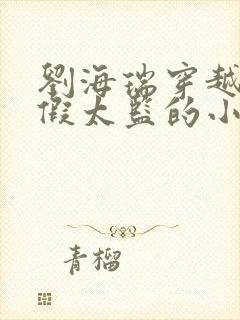 劉海瑞穿越
假太監的小
青榴